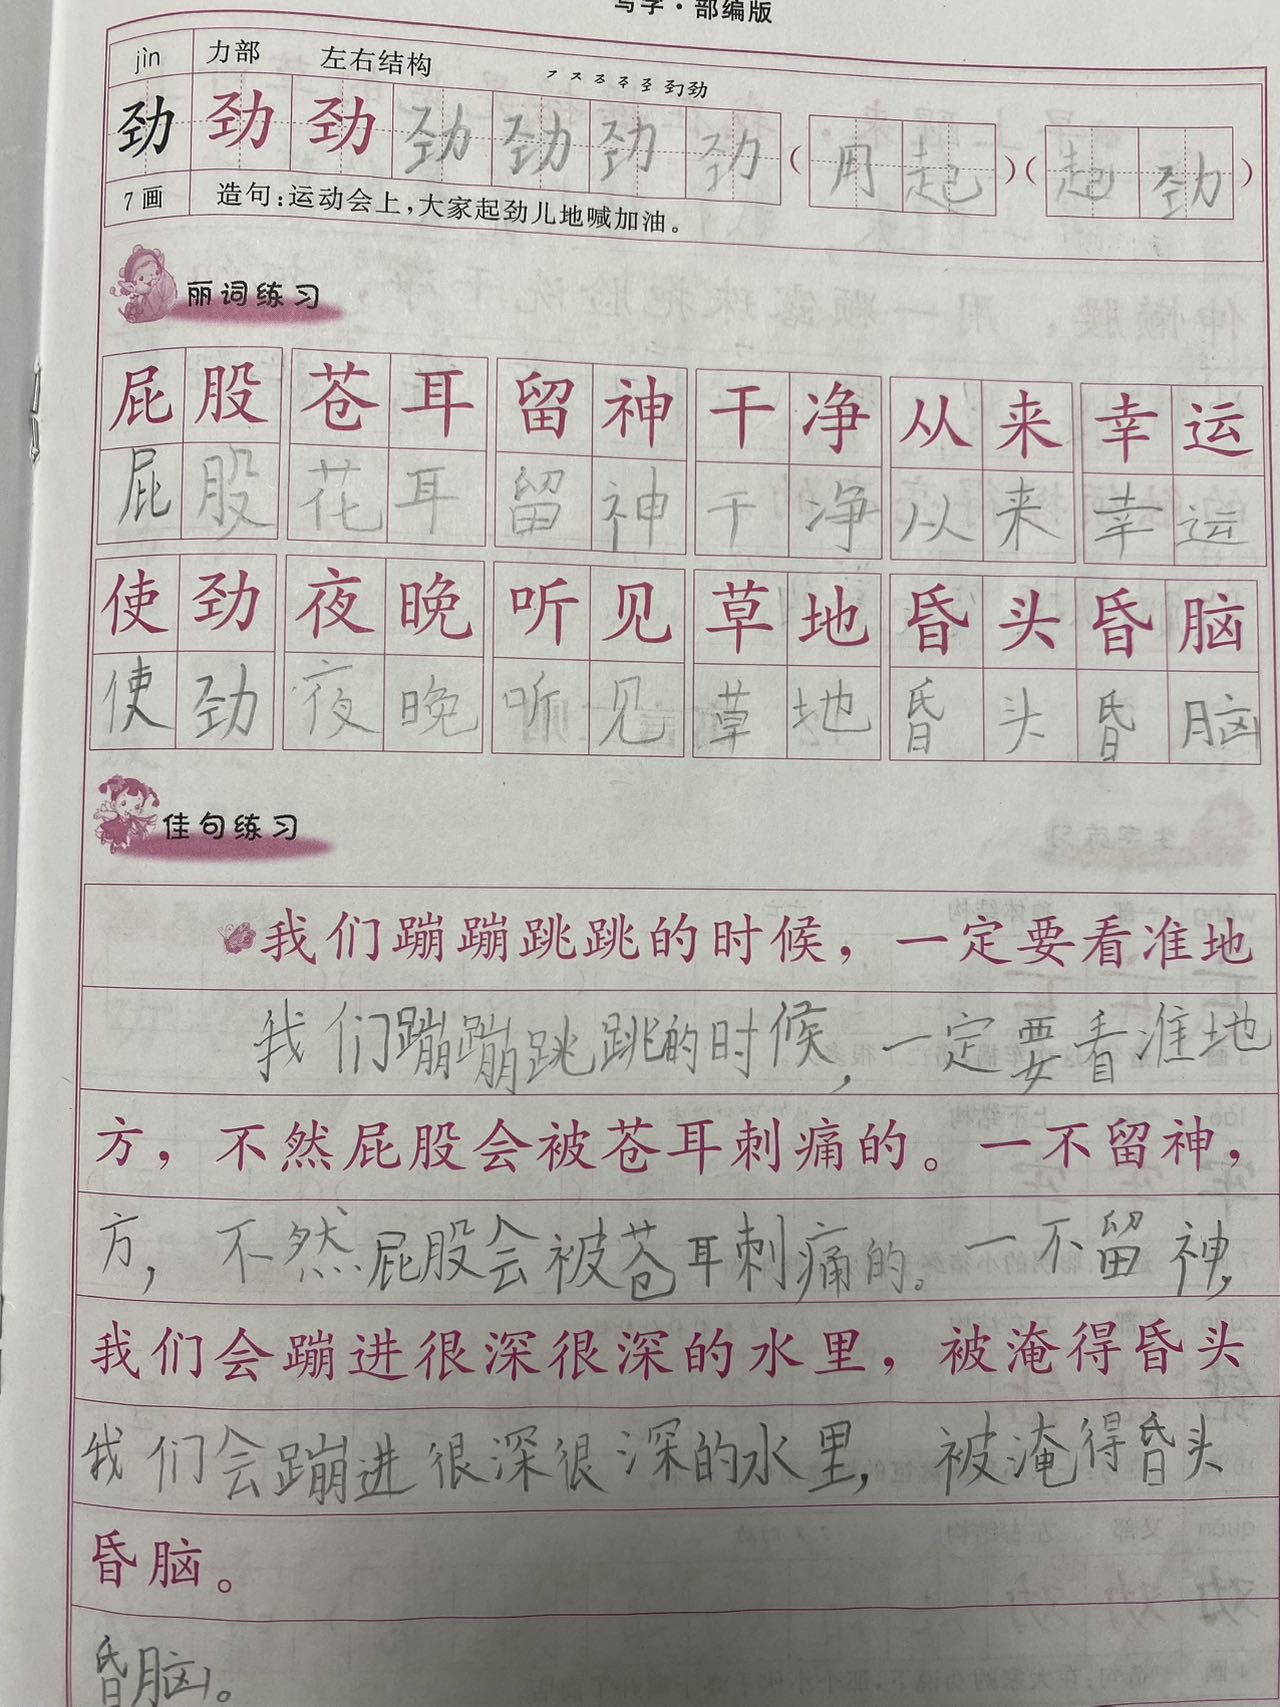 写字·部编版
jìn 力部 左右结构
劲 劲 劲 劲 劲 劲 劲 ( 用 起 ) ( 起 劲 )
7画 造句:运动会上,大家起劲儿地喊加油。
丽词练习
屁股 苍耳 留神 干净 从来 幸运
屁股 花耳 留神 干净 从来 幸运
使劲 夜晚 听见 草地 昏头昏脑
使劲 夜晚 听见 草地 昏头昏脑
佳句练习
我们蹦蹦跳跳的时候,一定要看准地
我们蹦蹦跳跳的时候,一定要看准地
方,不然屁股会被苍耳刺痛的。一不留神,
方,不然屁股会被苍耳刺痛的。一不留神,
我们会蹦进很深很深的水里,被淹得昏头
我们会蹦进很深很深的水里,被淹得昏头
昏脑。
昏脑。